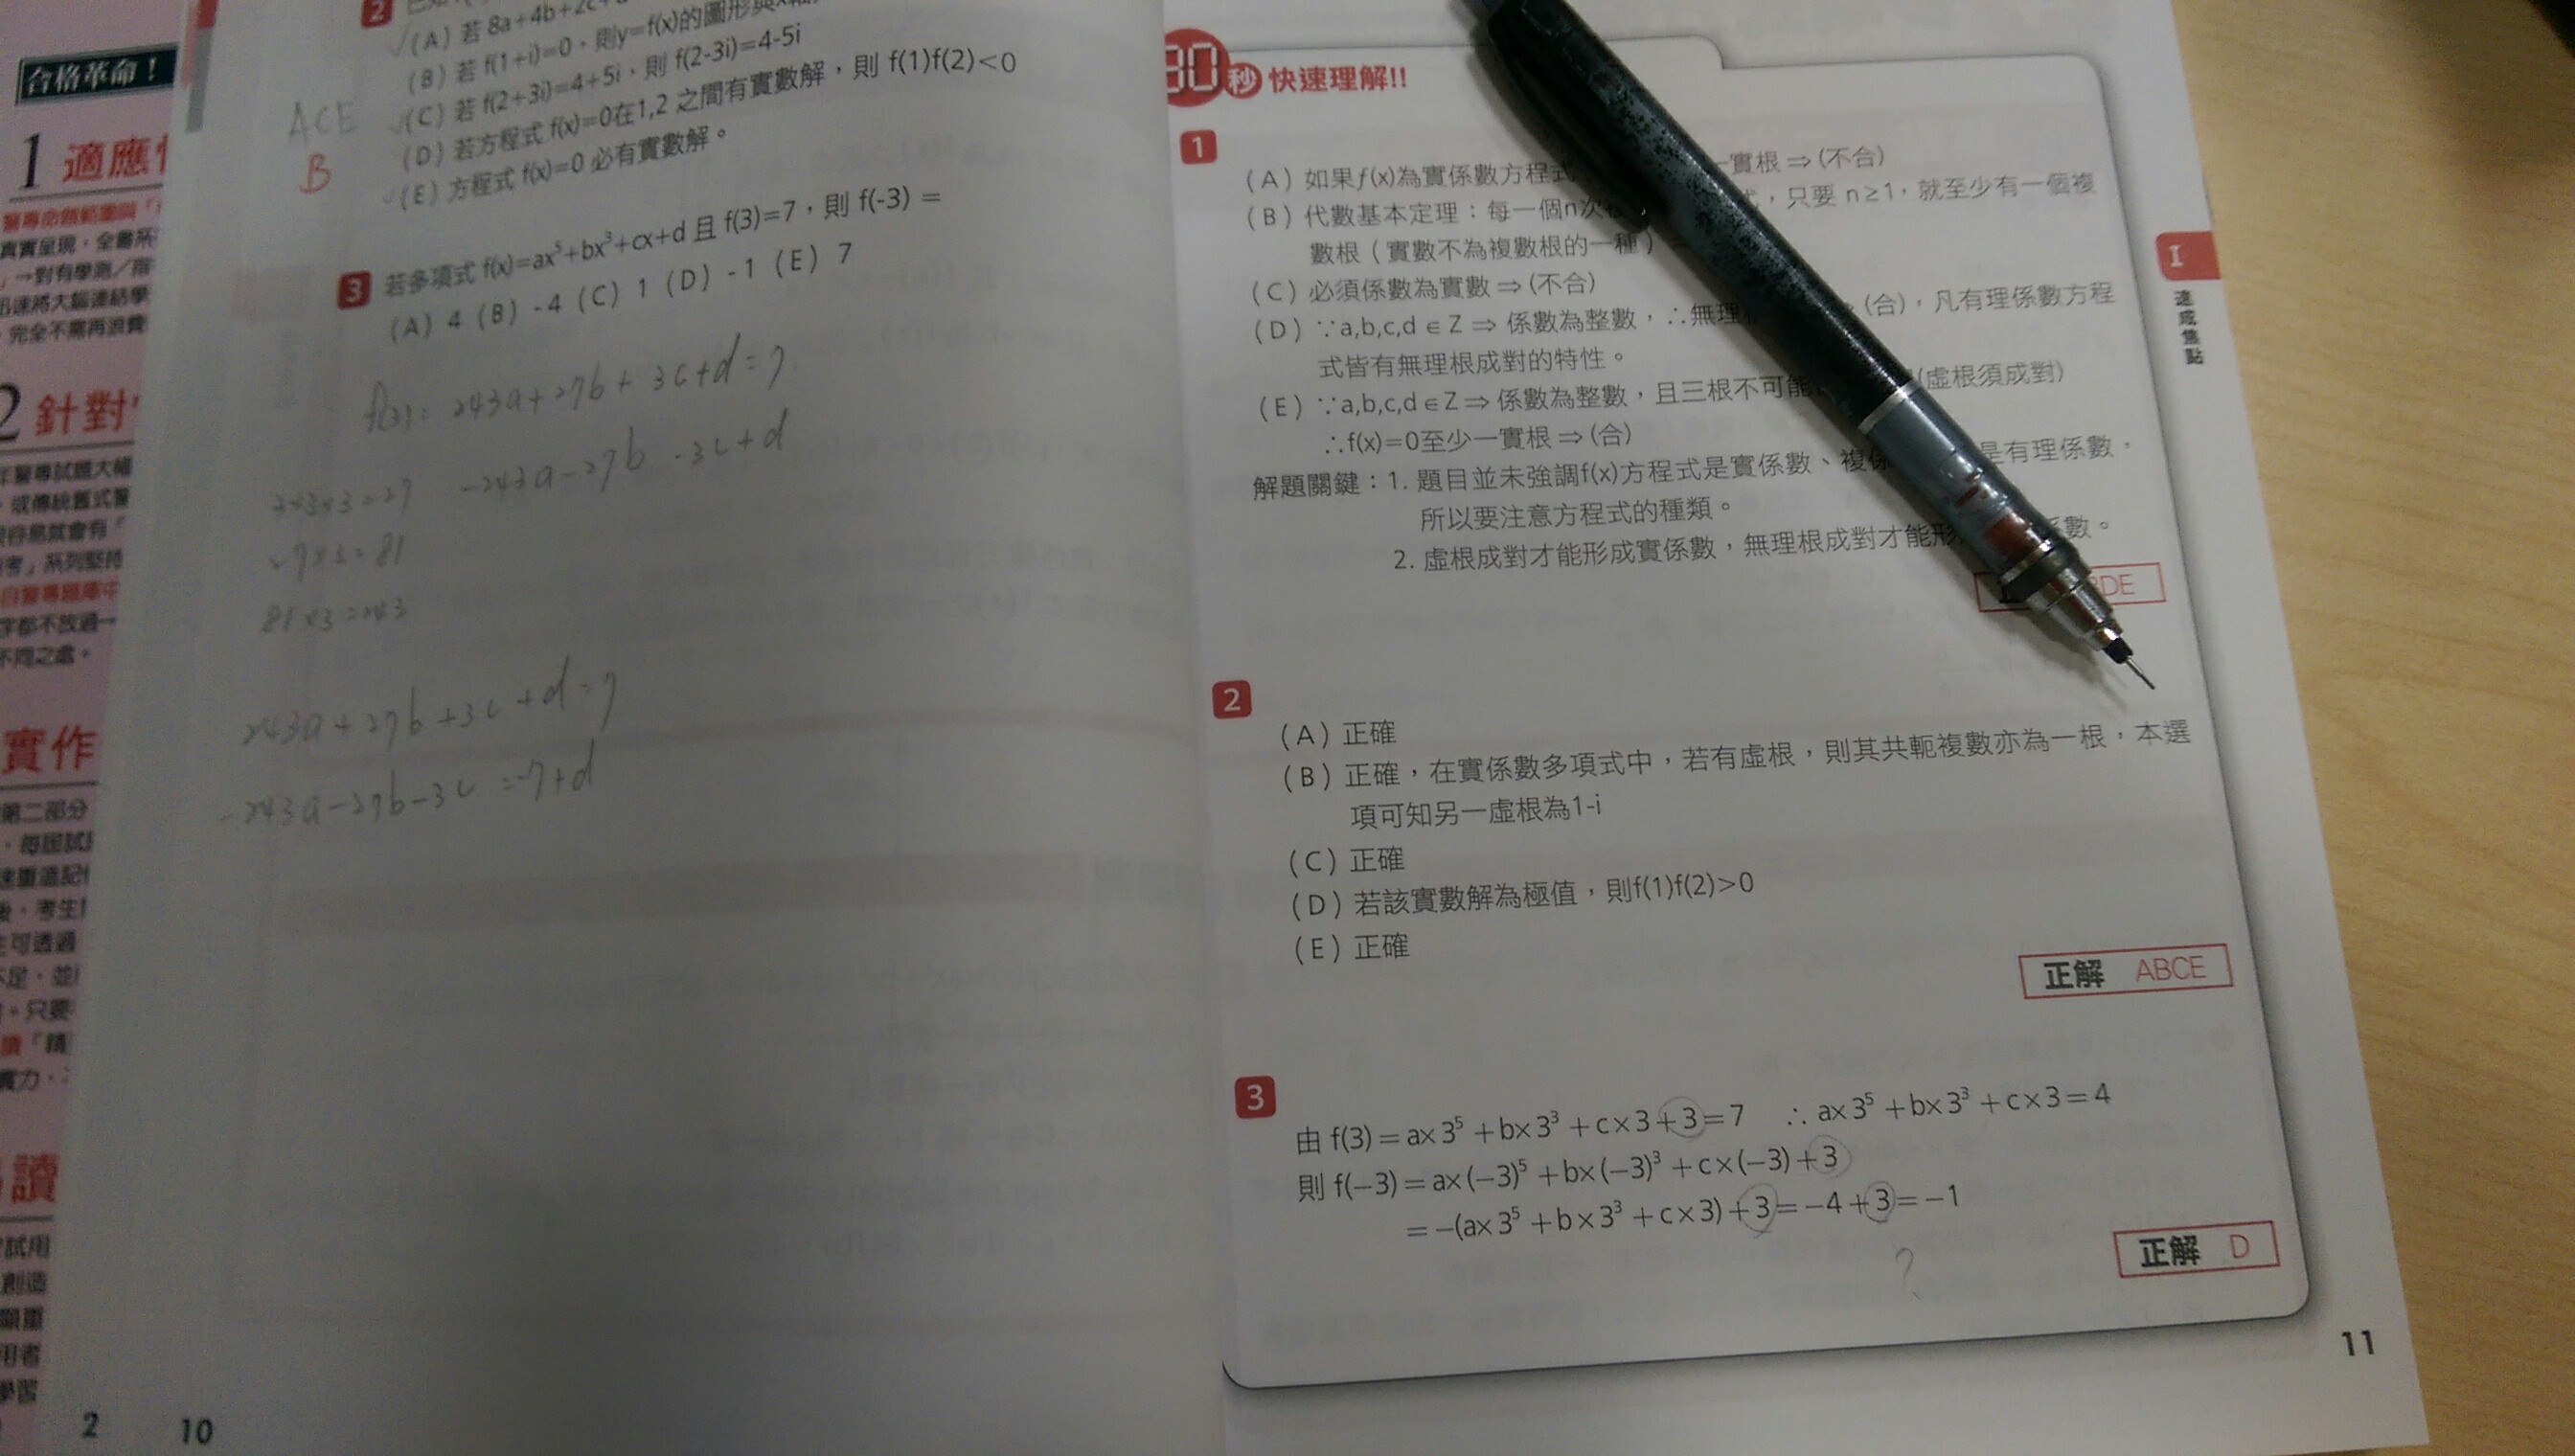 合格革命！
1 適應
2 針對
實作
第二部分
讀
試用
創造
學習
2
2
(A) 若 8a+4b+2c+
(B) 若 f(1+i)=0，則y=f(x)的圖形與x軸
(C) 若 f(2+3i)=4+5i，則 f(2-3i)=4-5i
(D) 若方程式 f(x)=0在1,2 之間有實數解，則 f(1)f(2)<0
(E) 方程式 f(x)=0 必有實數解。
ACE
B
3 若多項式 f(x)=ax⁵+bx³+cx+d 且 f(3)=7，則 f(-3) =
(A) 4 (B) -4 (C) 1 (D) -1 (E) 7
f(3)= 243a+27b+3c+d=7
-243a-27b-3c+d
3×3×3=27
27×3=81
81×3=243
243a+27b+3c+d=7
-243a-27b-3c=-7+d
10
30秒 快速理解!!
1
(A) 如果f(x)為實係數方程式 一實根⇒(不合)
(B) 代數基本定理：每一個n次 式，只要 n≥1，就至少有一個複
數根（實數不為複數根的一種）
(C) 必須係數為實數⇒(不合)
(D) ∵a,b,c,d∈Z⇒ 係數為整數，∴無理 (合)，凡有理係數方程
式皆有無理根成對的特性。
(E) ∵a,b,c,d∈Z⇒ 係數為整數，且三根不可能 (虛根須成對)
∴f(x)=0至少一實根⇒(合)
解題關鍵：1. 題目並未強調f(x)方程式是實係數、複係 是有理係數，
所以要注意方程式的種類。
2. 虛根成對才能形成實係數，無理根成對才能形 係數。
DE
2
(A) 正確
(B) 正確，在實係數多項式中，若有虛根，則其共軛複數亦為一根，本選
項可知另一虛根為1-i
(C) 正確
(D) 若該實數解為極值，則f(1)f(2)>0
(E) 正確
正解 ABCE
3
由 f(3)=a×3⁵+b×3³+c×3+3=7 ∴a×3⁵+b×3³+c×3=4
則 f(−3)=a×(−3)⁵+b×(−3)³+c×(−3)+3
=−(a×3⁵+b×3³+c×3)+3=−4+3=−1
?
正解 D
I
速成焦點
11